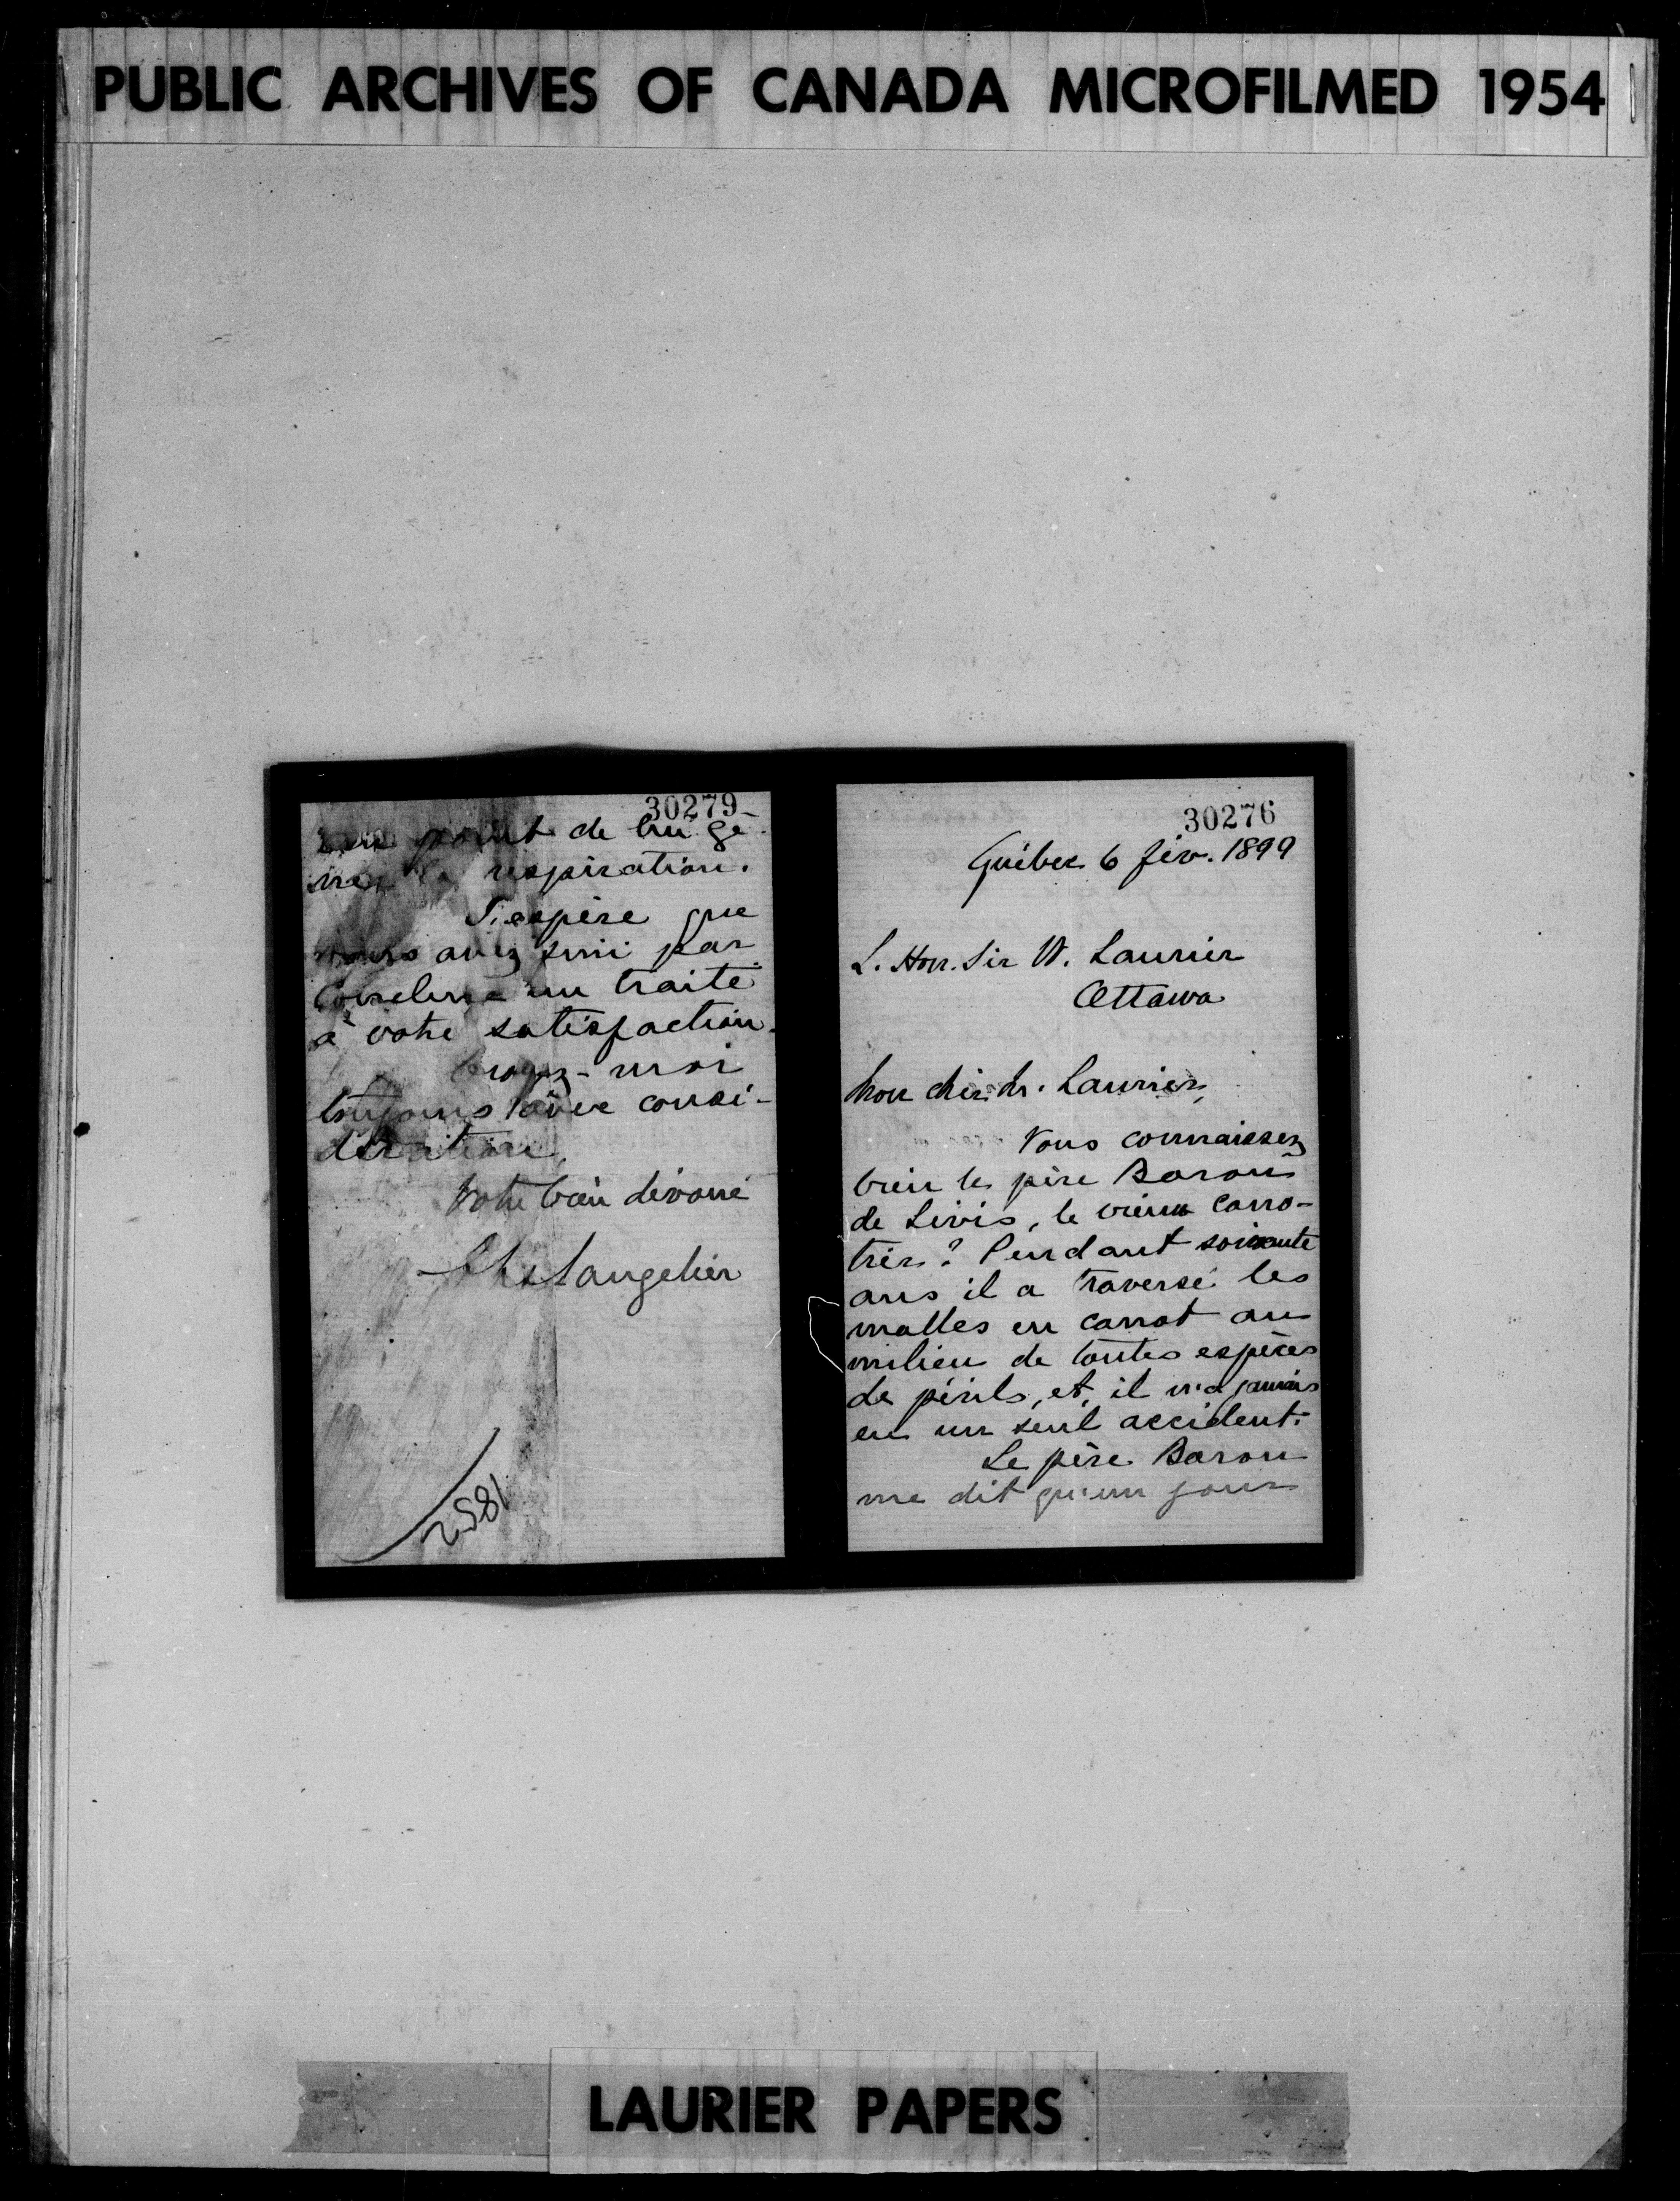 PUBLIC ARCHIVES OF CANADA MICROFILMED 1954
30279
point de lui gê-
ner la respiration.
J'espère que
vous avez fini par
conclure un traité
à votre satisfaction.
Croyez-moi
toujours avec consi-
dération,
Votre bien dévoué
Ch Langelier
2581
30276
Québec 6 fév. 1899
L. Hon. Sir W. Laurier
Ottawa
Mon cher M. Laurier,
Vous connaissez
bien le père Baron
de Lévis, le vieux cano-
tier? Pendant soixante
ans il a traversé les
malles en canot au
milieu de toutes espèces
de périls, et, il n'a jamais
eu un seul accident.
Le père Baron
me dit qu'un jour
LAURIER PAPERS